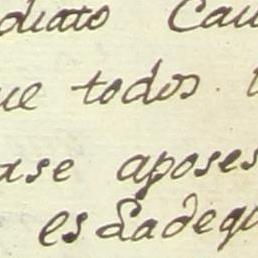 diato Cau
ue todos
ase aposes
es Ladequ